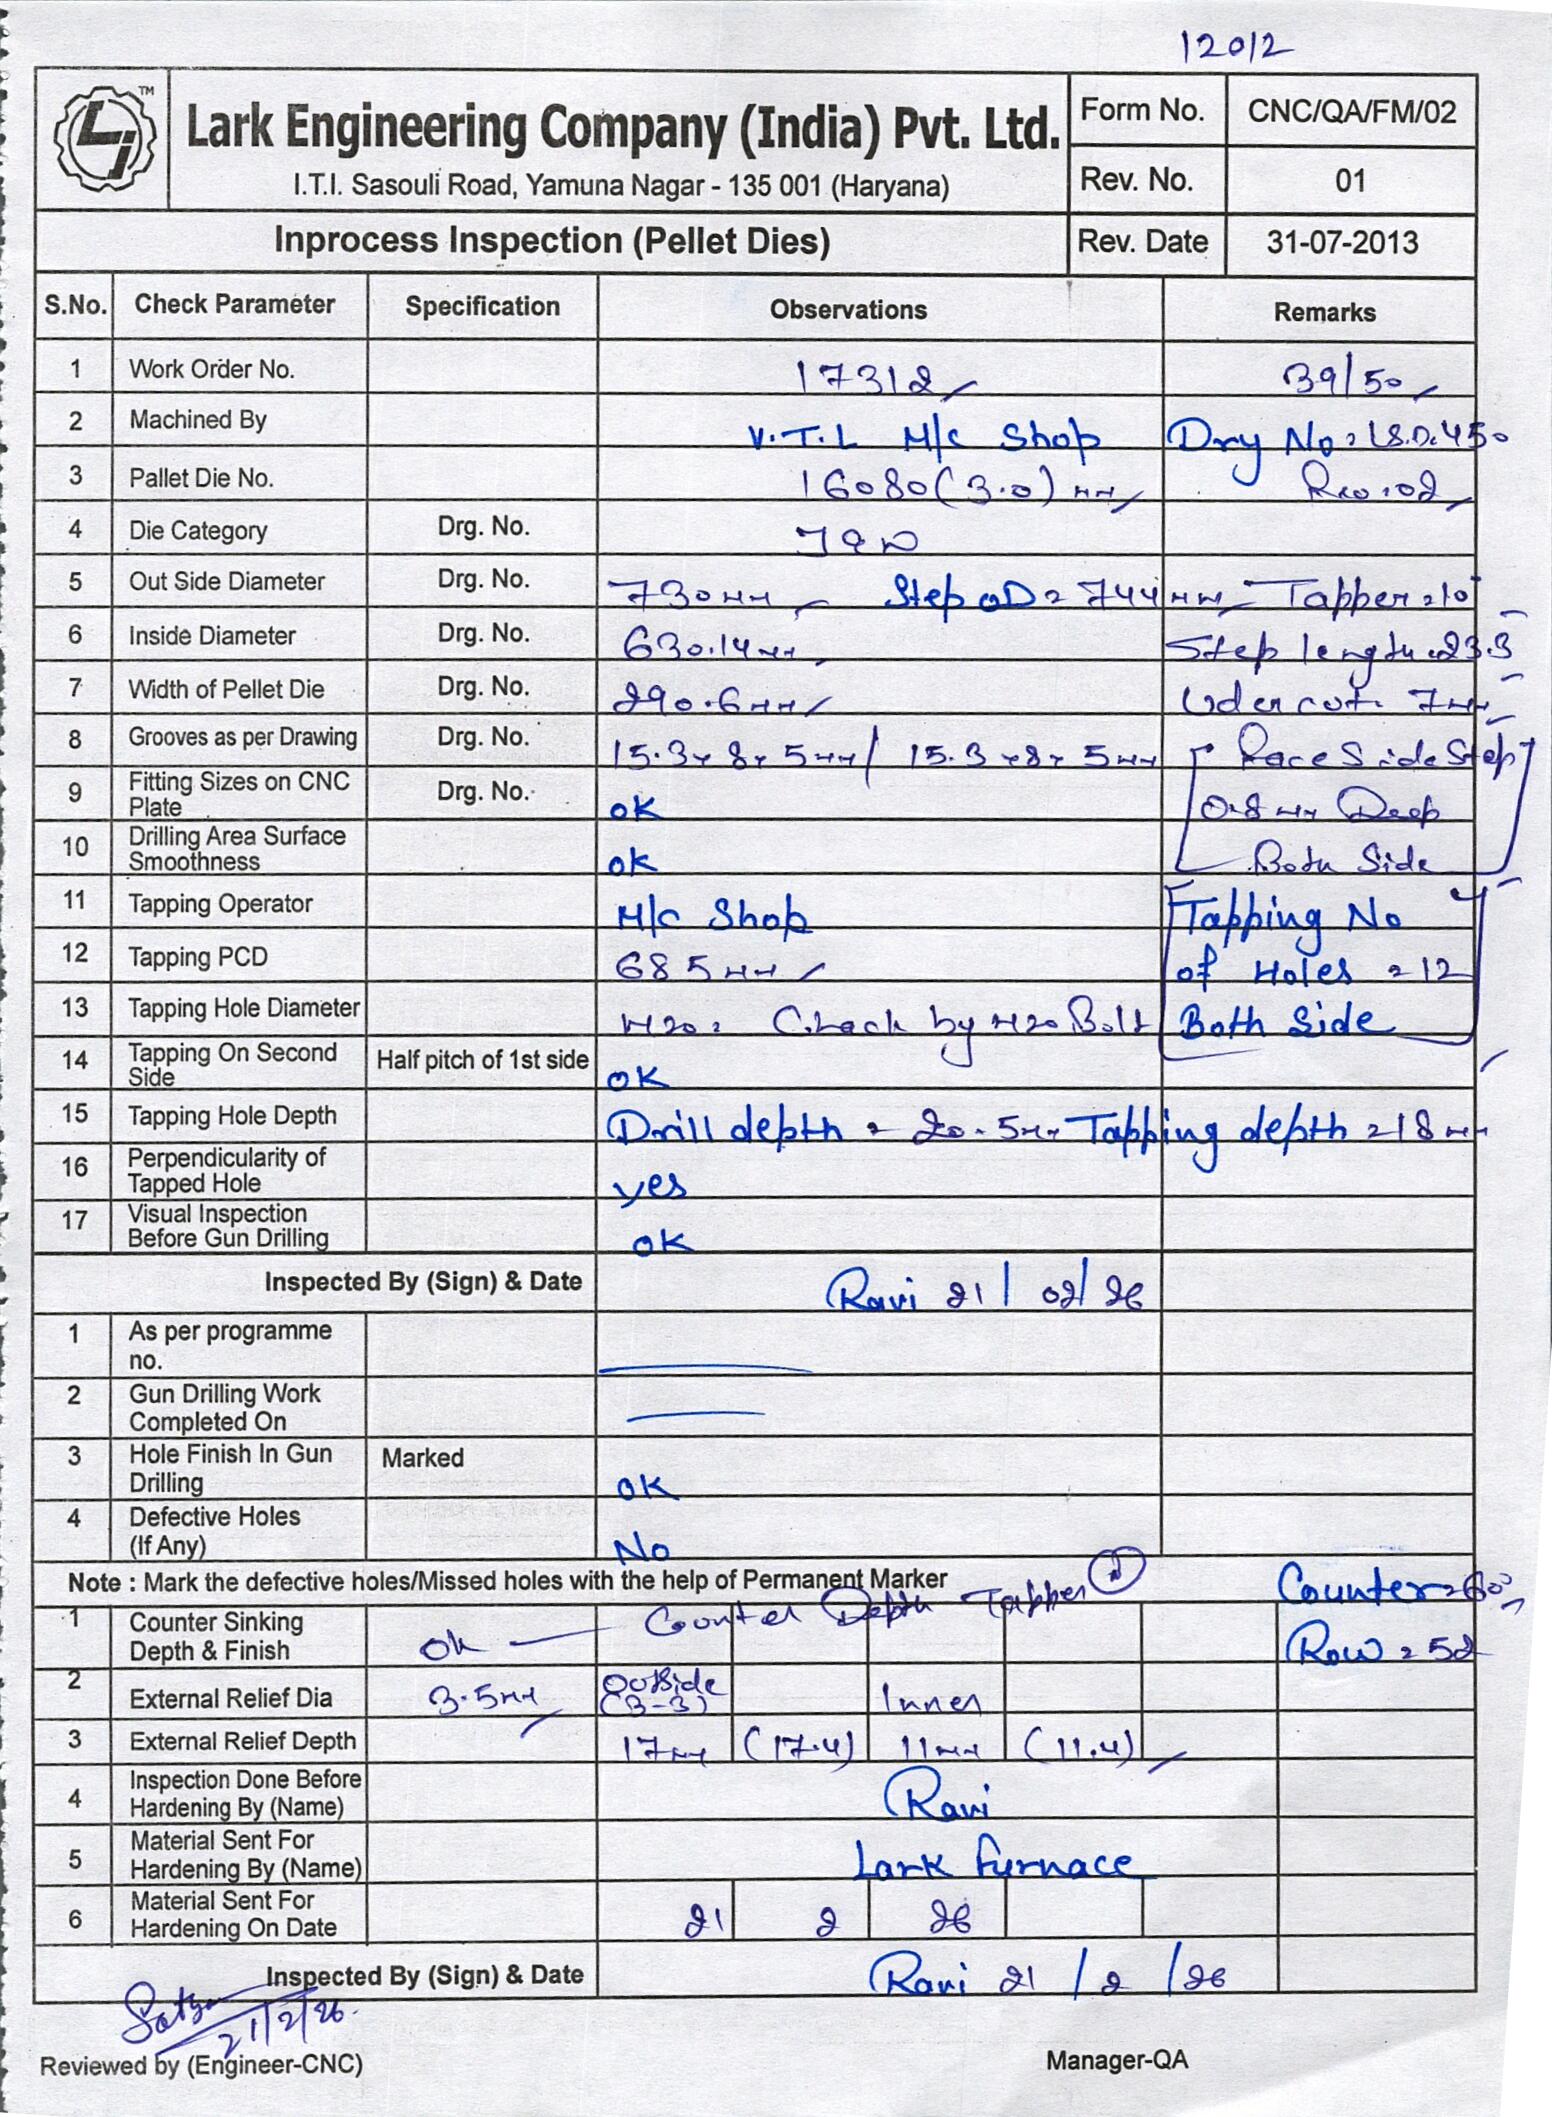 12012
LJ TM
Lark Engineering Company (India) Pvt. Ltd.
I.T.I. Sasouli Road, Yamuna Nagar - 135 001 (Haryana)
Form No. CNC/QA/FM/02
Rev. No. 01
Inprocess Inspection (Pellet Dies) Rev. Date 31-07-2013
S.No. Check Parameter Specification Observations Remarks
1 Work Order No. 17312 39/50
2 Machined By V.T.L M/c Shop Drg No = LS.D.450
3 Pallet Die No. 16080 (3.0) mm Rev:02
4 Die Category Drg. No.
5 Out Side Diameter Drg. No. 730mm Step OD = 744mm Tapper = 10°
6 Inside Diameter Drg. No. 630.14mm Step length = 23.3
7 Width of Pellet Die Drg. No. 290.6mm Udercut. 7mm
8 Grooves as per Drawing Drg. No. 15.3 x 8 x 5mm / 15.3 x 8 x 5mm Race Side Step
9 Fitting Sizes on CNC Plate Drg. No. ok 0.8mm Deep
10 Drilling Area Surface Smoothness ok Both Side
11 Tapping Operator M/c Shop Tapping No
12 Tapping PCD 685mm of Holes = 12
13 Tapping Hole Diameter M20 = Check by M20 Bolt Both Side
14 Tapping On Second Side Half pitch of 1st side ok
15 Tapping Hole Depth Drill depth = 20.5mm Tapping depth = 18mm
16 Perpendicularity of Tapped Hole yes
17 Visual Inspection Before Gun Drilling ok
Inspected By (Sign) & Date Ravi 21/02/26
1 As per programme no.
2 Gun Drilling Work Completed On
3 Hole Finish In Gun Drilling Marked ok
4 Defective Holes (If Any) No
Note : Mark the defective holes/Missed holes with the help of Permanent Marker
Counter = 60°
1 Counter Sinking Depth & Finish ok Counter Depth Tapper Row = 52
2 External Relief Dia 3.5mm Outside (3-3) Inner
3 External Relief Depth 17mm (17.4) 11mm (11.4)
4 Inspection Done Before Hardening By (Name) Ravi
5 Material Sent For Hardening By (Name) Lark furnace
6 Material Sent For Hardening On Date 21 2 26
Inspected By (Sign) & Date Ravi 21/2/26
21/2/26.
Reviewed by (Engineer-CNC) Manager-QA